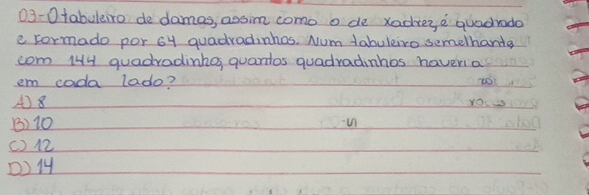 03-O tabuleiro de damas, assim como o de xadrez, é quadrado
e formado por 64 quadradinhos. Num tabuleiro semelhante
com 144 quadradinhos, quantos quadradinhos haveria
em cada lado?
A) 8
B) 10
C) 12
D) 14